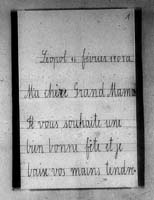 1
Léopol 14 février
Ma chère Grand Mama
Je vous souhaite une
bien bonne fête et je
baise vos mains tendre